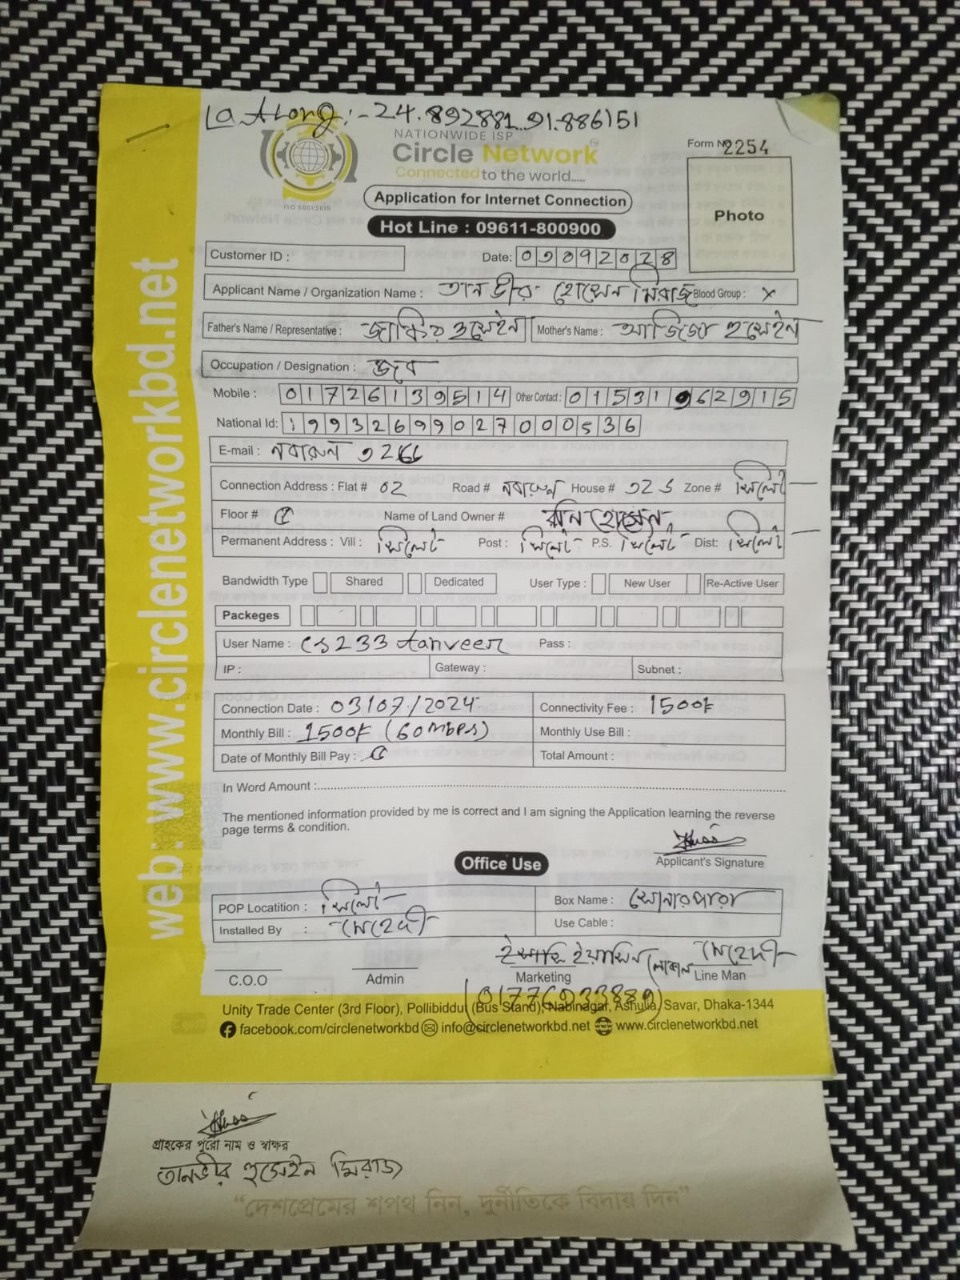 La Along:- 24.892881, 91.886151
NATIONWIDE ISP
Circle Network
Connected to the world.....
ISO 9001:2015
Form No 2254
Photo
Application for Internet Connection
Hot Line : 09611-800900
Customer ID : Date:
Applicant Name / Organization Name : তানভীর হোসেন মিরাজ Blood Group : x
Father's Name / Representative : জাকির হুসেইন Mother's Name : আজিজা হুসেইন
Occupation / Designation : জব
Mobile : 01726139514 Other Contact : 01531962915
National Id: 19932699027000536
E-mail : নবারুন ১২৬৬
Connection Address : Flat # 02 Road # নবারুন House # Zone # সিলেট
Floor # Name of Land Owner # হোসেন
Permanent Address : Vill : সিলেট Post : সিলেট P.S. সিলেট Dist: সিলেট
Bandwidth Type Shared Dedicated User Type : New User Re-Active User
Packeges
User Name : cs233tanveer Pass :
IP : Gateway : Subnet :
Connection Date : 03/07/2024 Connectivity Fee : 1500৳
Monthly Bill : 1500৳ (60mbps) Monthly Use Bill :
Date of Monthly Bill Pay : Total Amount :
In Word Amount :
The mentioned information provided by me is correct and I am signing the Application learning the reverse
page terms & condition.
Applicant's Signature
Office Use
POP Locatition : সিলেট Box Name : সোনারপারা
Installed By : মেহেদী Use Cable :
ইয়াসিন মেহেদী
C.O.O Admin Marketing Line Man
Unity Trade Center (3rd Floor), Pollibiddut (Bus Stand), Nabinagar, Ashulia, Savar, Dhaka-1344
facebook.com/circlenetworkbd info@circlenetworkbd.net www.circlenetworkbd.net
web: www.circlenetworkbd.net
গ্রাহকের পুরো নাম ও স্বাক্ষর
তানভীর হুসেইন মিরাজ
“দেশপ্রেমের শপথ নিন, দুর্নীতিকে বিদায় দিন”